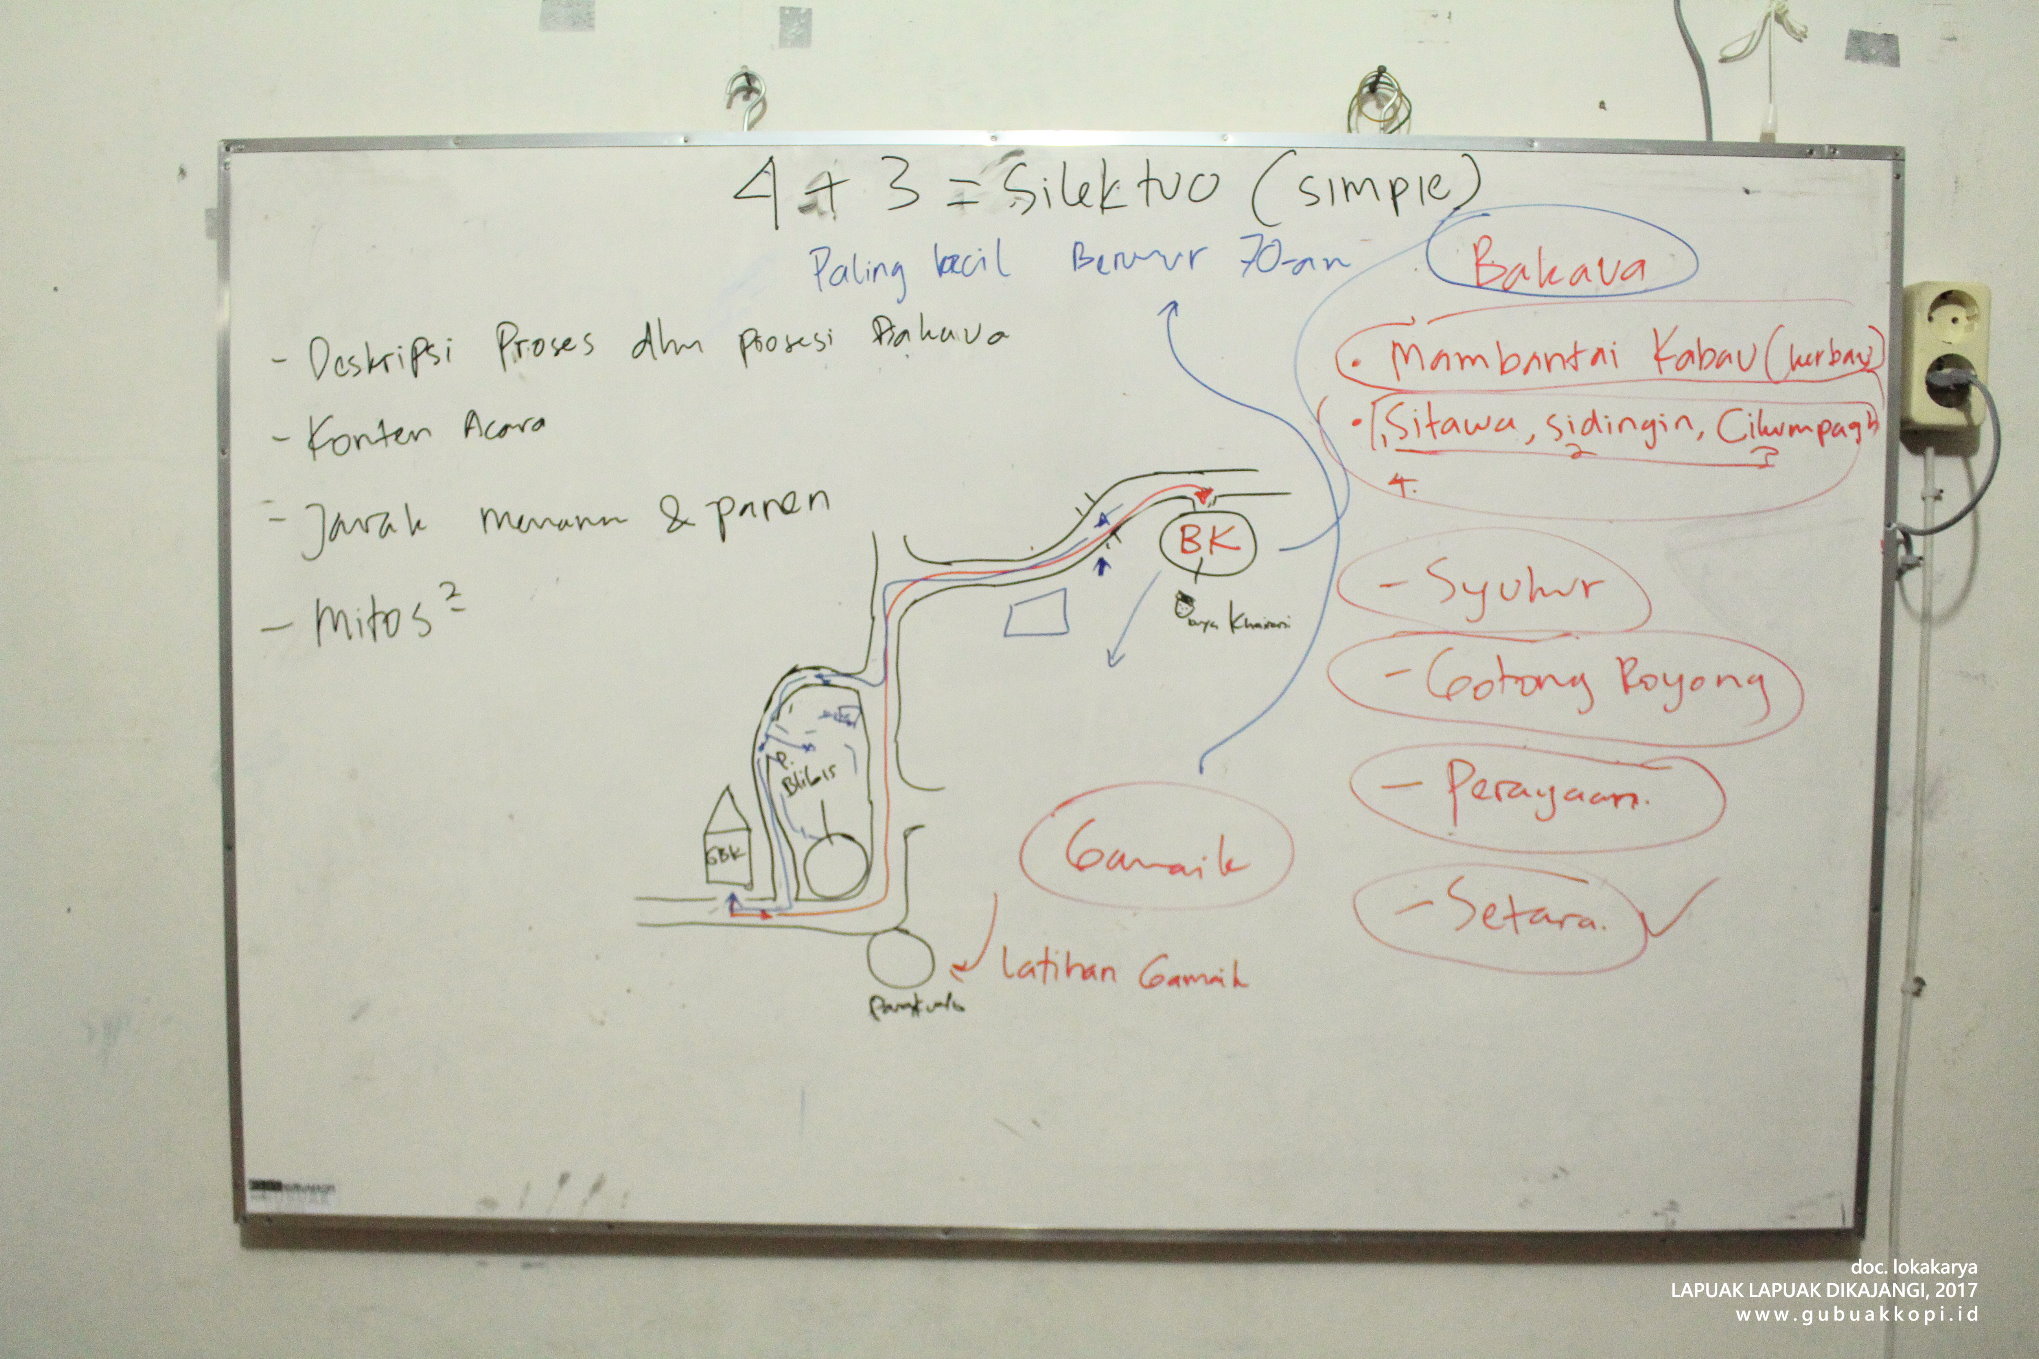 4 + 3 = Silek tuo (simple)
Paling kecil Berumur 70-an
Bakaua
- Deskripsi Proses dlm prosesi Bakaua
- Konten Acara
- Jarak menanam & panen
- Mitos²
• Mambantai Kabau (kerbau)
• 1. Sitawa, sidingin, Cikumpagh
2 3
4.
- Syukur
- Gotong Royong
- Perayaan.
- Setara.
BK
P.
Blibis
GBK
Gamaik
Latihan Gamaik
doc. lokakarya
LAPUAK LAPUAK DIKAJANGI, 2017
www.gubuakkopi.id